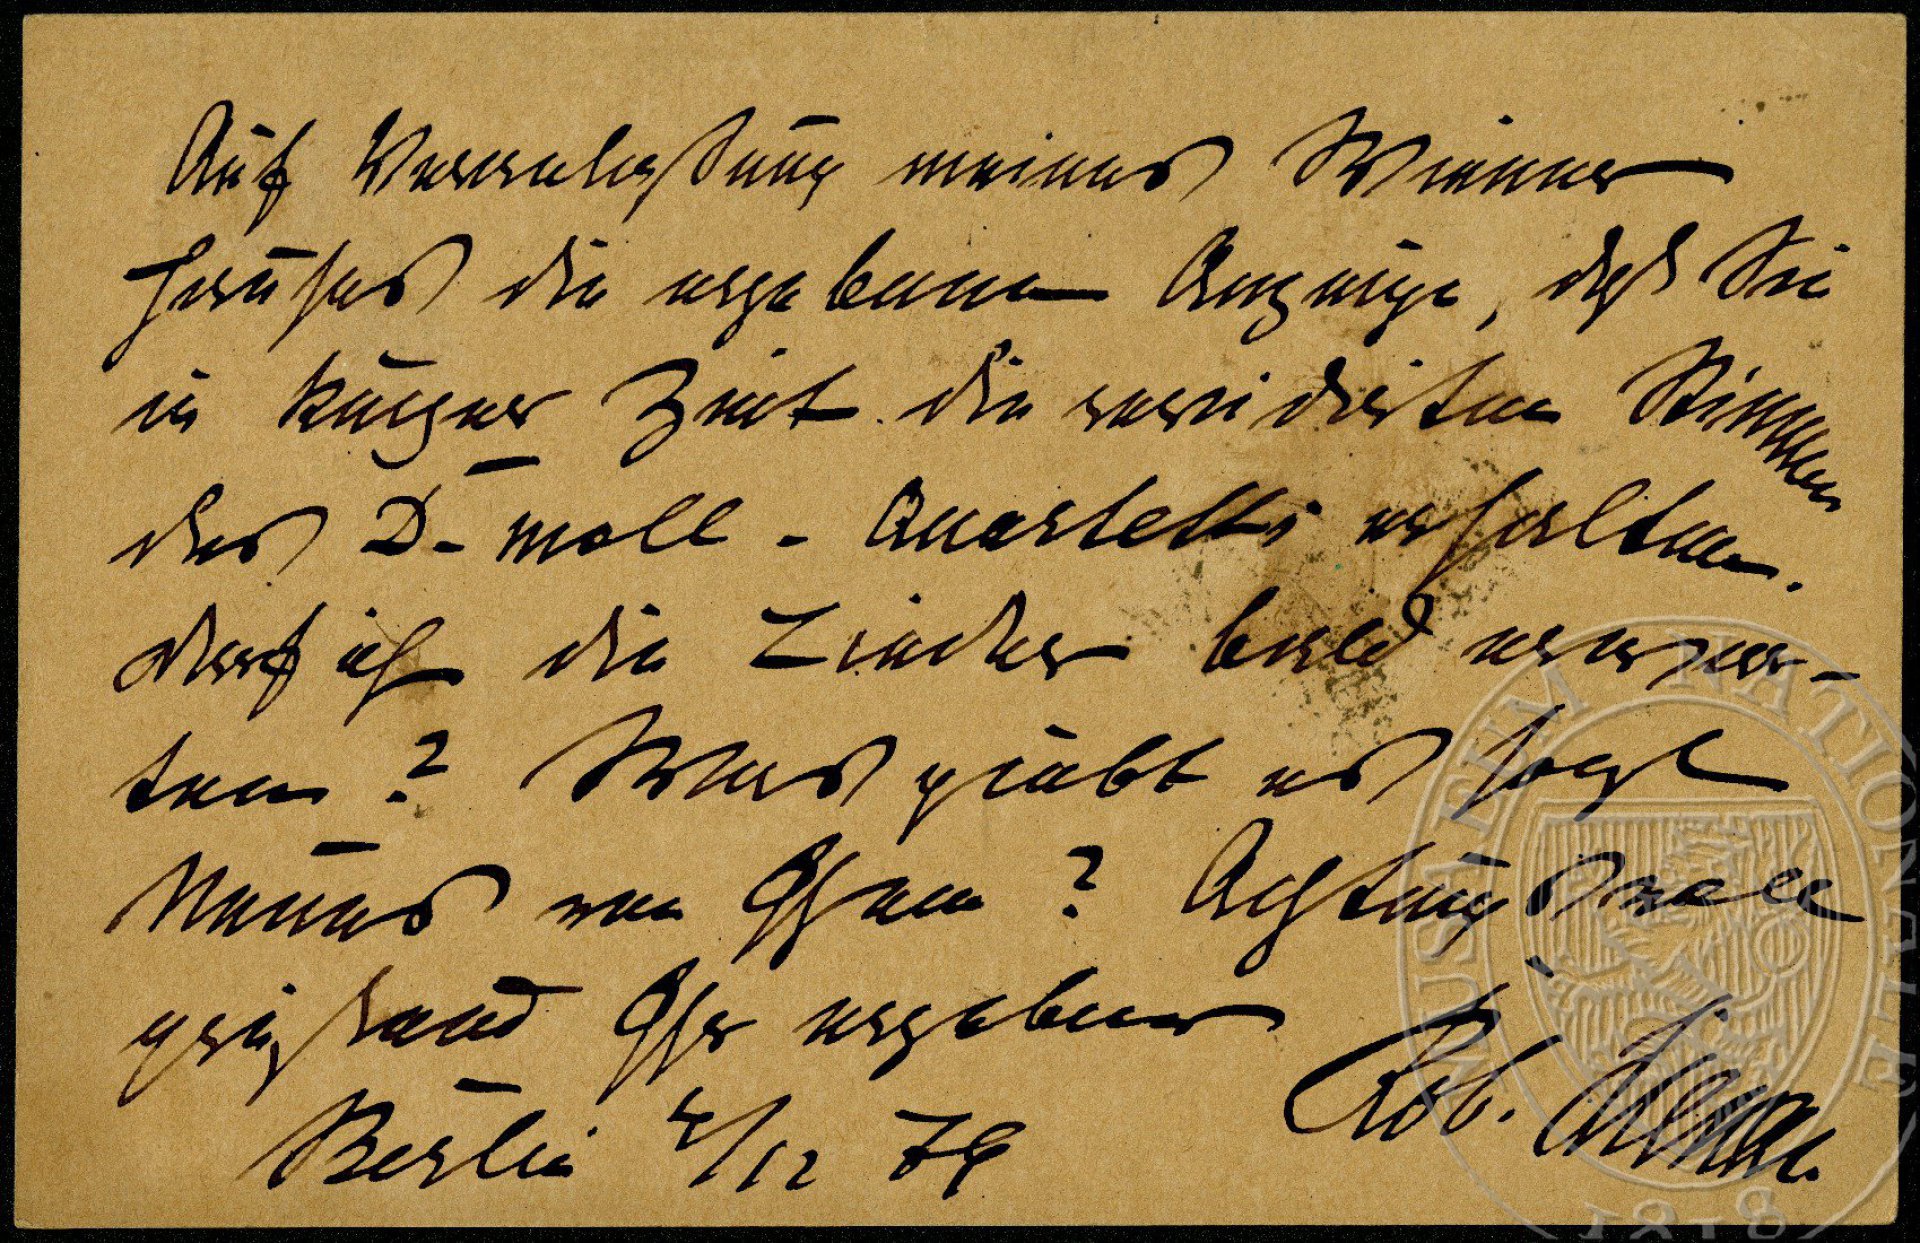 Auf Veranlassung meines Wiener
Hauses die ergebene Anzeige, daß Sie
in kurzer Zeit die revidirten Stimmen
des D-moll-Quartetts erhalten.
Darf ich die Lieder bald erwar-
ten? Was giebt es sonst
Neues von Ihnen? Achtungsvoll
grüßend Ihr ergebener
Rob.
Berlin 4/12 79
MUSAEUM NATIONALE
1818